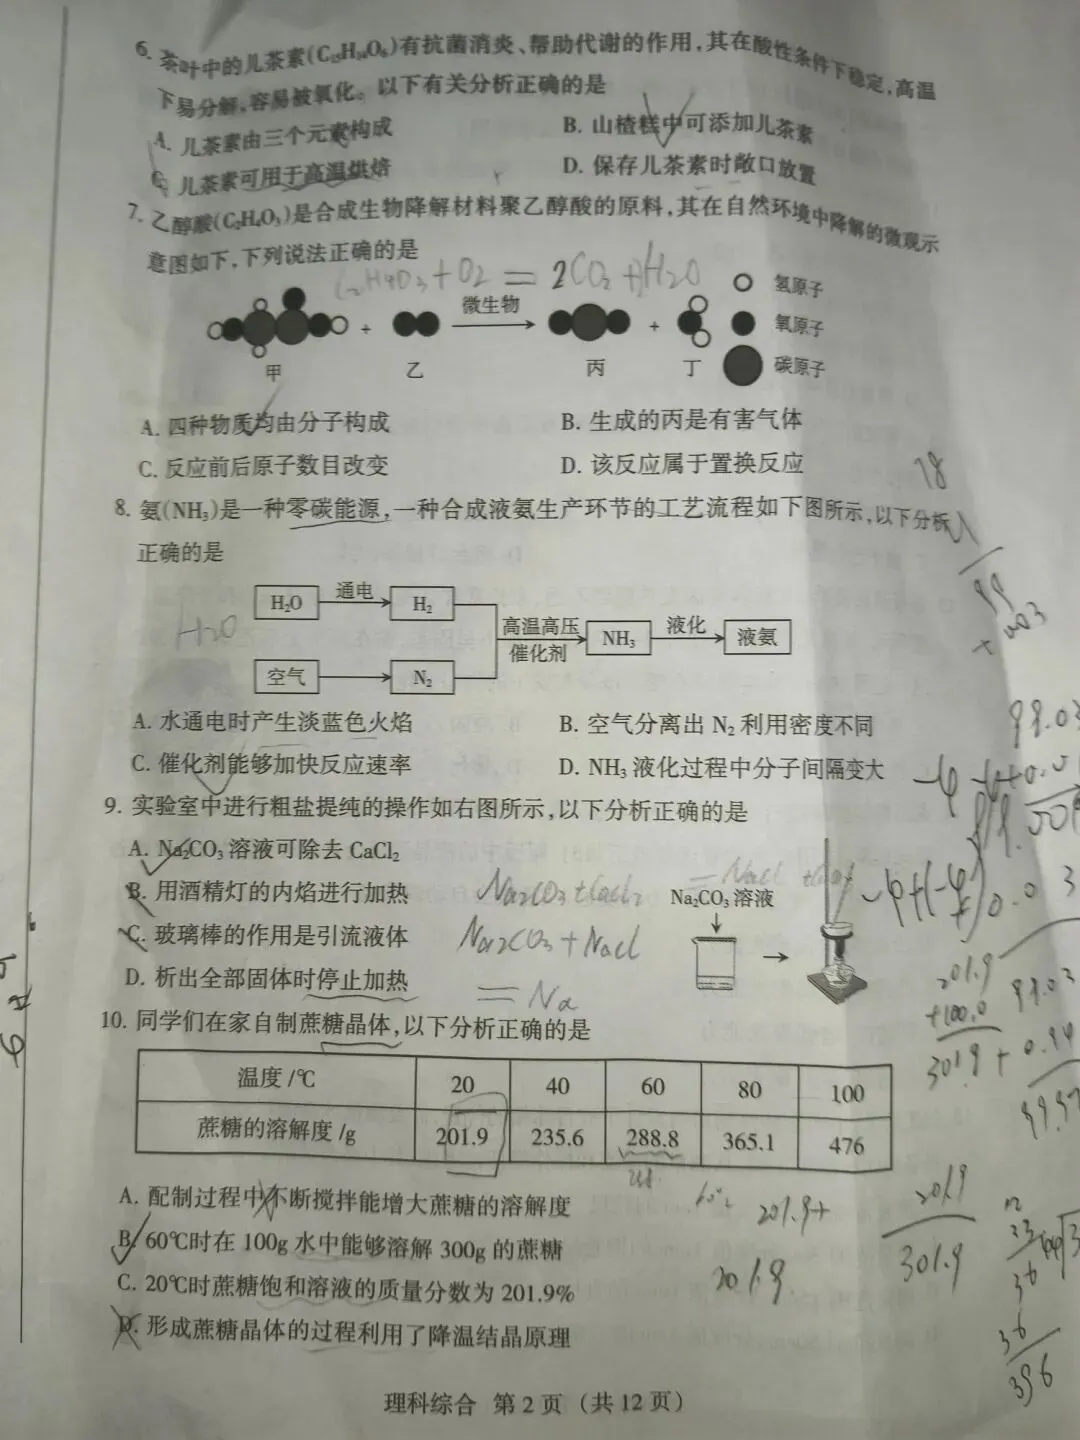 6. 茶叶中的儿茶素(C₁₅H₁₄O₆)有抗菌消炎、帮助代谢的作用,其在酸性条件下稳定,高温
下易分解,容易被氧化。以下有关分析正确的是
A. 儿茶素由三个元素构成
B. 山楂糕中可添加儿茶素
C. 儿茶素可用于高温烘焙
D. 保存儿茶素时敞口放置
7. 乙醇酸(C₂H₄O₃)是合成生物降解材料聚乙醇酸的原料,其在自然环境中降解的微观示
意图如下,下列说法正确的是
C₂H₄O₃+O₂=2CO₂+H₂O
微生物
+
+
甲
乙
丙
丁
氢原子
氧原子
碳原子
A. 四种物质均由分子构成
B. 生成的丙是有害气体
C. 反应前后原子数目改变
D. 该反应属于置换反应
18
8. 氨(NH₃)是一种零碳能源,一种合成液氨生产环节的工艺流程如下图所示,以下分析
正确的是
H₂O
通电
H₂
空气
N₂
高温高压
催化剂
NH₃
液化
液氨
H2O
A. 水通电时产生淡蓝色火焰
B. 空气分离出 N₂ 利用密度不同
C. 催化剂能够加快反应速率
D. NH₃ 液化过程中分子间隔变大
9. 实验室中进行粗盐提纯的操作如右图所示,以下分析正确的是
A. Na₂CO₃ 溶液可除去 CaCl₂
B. 用酒精灯的内焰进行加热
C. 玻璃棒的作用是引流液体
D. 析出全部固体时停止加热
Na₂CO₃ 溶液
Na2CO3+CaCl2
=NaCl
Na2CO3+NaCl
=Na
10. 同学们在家自制蔗糖晶体,以下分析正确的是
温度/℃ 20 40 60 80 100
蔗糖的溶解度/g 201.9 235.6 288.8 365.1 476
A. 配制过程中不断搅拌能增大蔗糖的溶解度
B. 60℃时在 100g 水中能够溶解 300g 的蔗糖
C. 20℃时蔗糖饱和溶液的质量分数为 201.9%
D. 形成蔗糖晶体的过程利用了降温结晶原理
201.9+
201.9
201.9
301.9
201.9
+100.0
301.9
99.03
36
36
396
理科综合 第 2 页 (共 12 页)